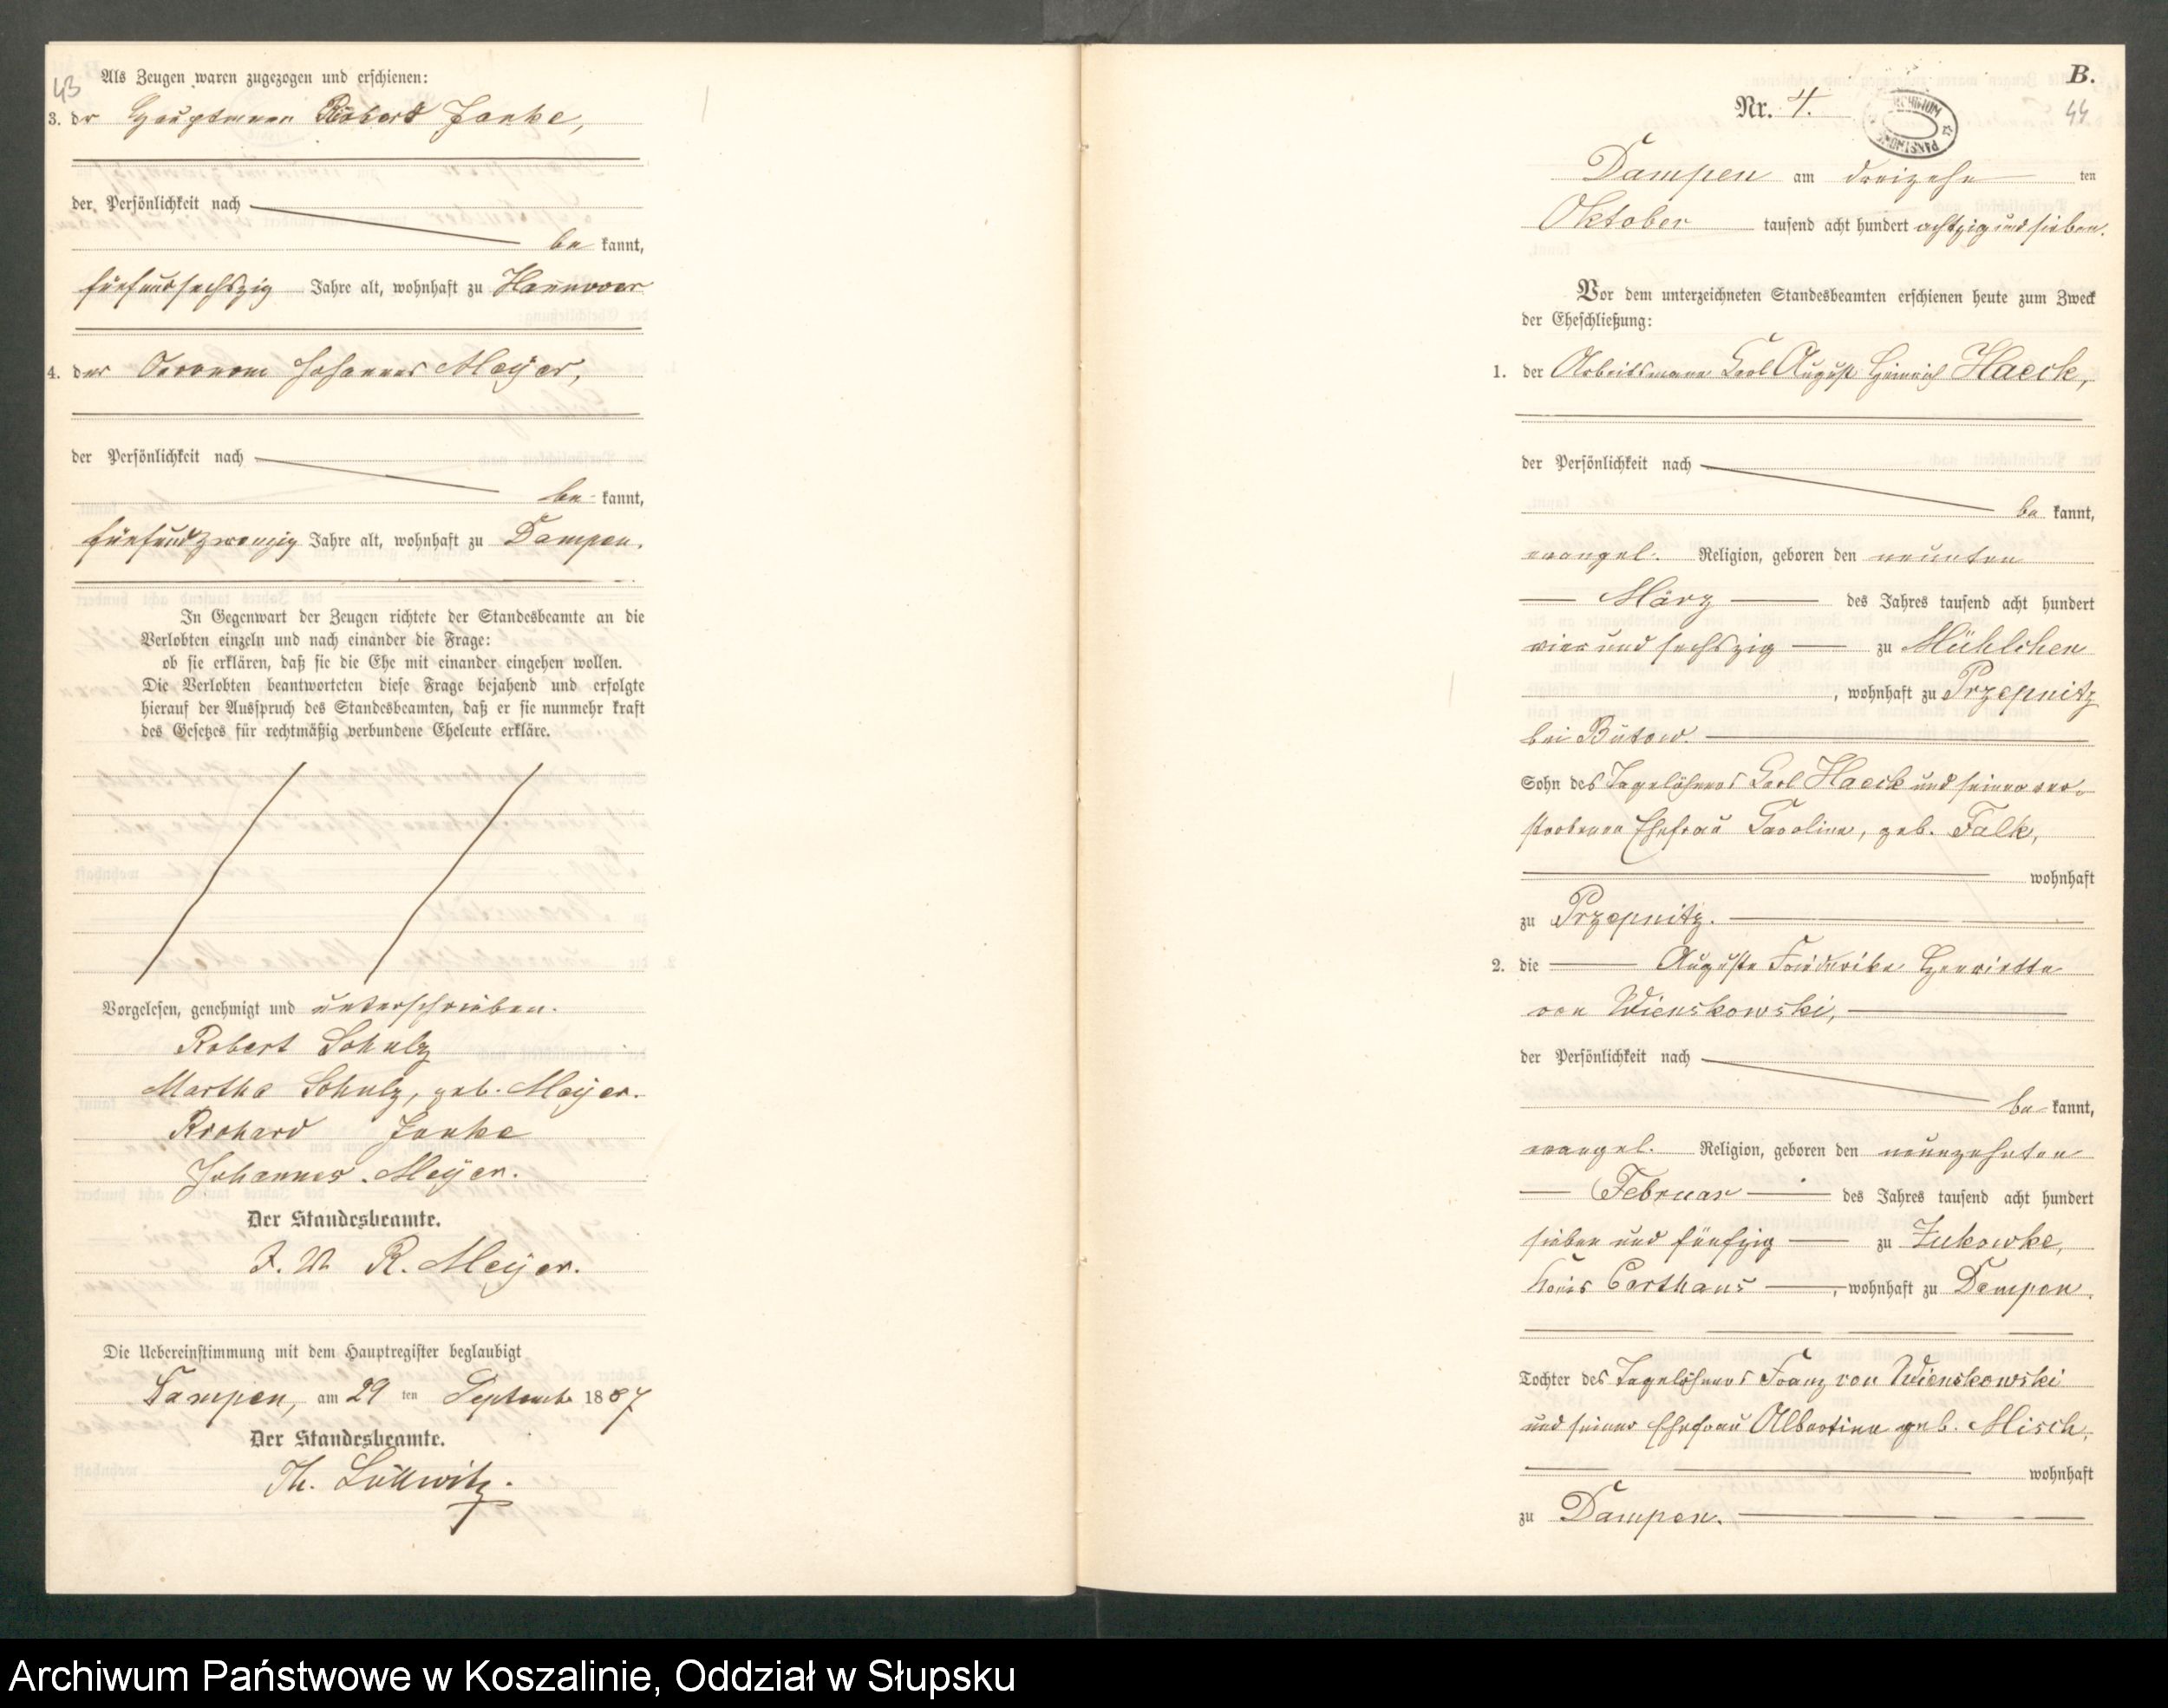 43
Als Zeugen waren zugezogen und erschienen:
3. der Hauptmann Robert Janke,
der Persönlichkeit nach
be kannt,
fünfundsechszig Jahre alt, wohnhaft zu Hannover
4. der Oeconom Johannes Meÿer,
der Persönlichkeit nach
be kannt,
fünfundzwanzig Jahre alt, wohnhaft zu Dampen.
In Gegenwart der Zeugen richtete der Standesbeamte an die
Verlobten einzeln und nach einander die Frage:
ob sie erklären, daß sie die Ehe mit einander eingehen wollen.
Die Verlobten beantworteten diese Frage bejahend und erfolgte
hierauf der Ausspruch des Standesbeamten, daß er sie nunmehr kraft
des Gesetzes für rechtmäßig verbundene Eheleute erkläre.
Vorgelesen, genehmigt und unterschrieben.
Robert Schulz
Martha Schulz, geb. Meÿer.
Richard Janke
Johannes Meÿer.
Der Standesbeamte.
R. Meÿer.
Die Uebereinstimmung mit dem Hauptregister beglaubigt
Dampen, am 29 ten Septemb. 1887
Der Standesbeamte.
Th.
B.
Nr. 4.
44
Dampen am dreizehn ten
Oktober tausend acht hundert achtzig und sieben.
Vor dem unterzeichneten Standesbeamten erschienen heute zum Zweck
der Eheschließung:
1. der Arbeitsmann Carl August Heinrich Haeck,
der Persönlichkeit nach
be kannt,
evangel. Religion, geboren den neunten
März des Jahres tausend acht hundert
vier und sechszig zu Mühlchen
, wohnhaft zu Przepnitz
bei Bütow.
Sohn des Tagelöhners Carl Haeck und seiner ver-
storbenen Ehefrau Caroline, geb. Falk,
wohnhaft
zu Przepnitz.
2. die Auguste Friederike Henriette
von Wienskowski,
der Persönlichkeit nach
be kannt,
evangel. Religion, geboren den neunzehnten
Februar des Jahres tausend acht hundert
sieben und fünfzig zu Zukowke,
Kreis Carthaus, wohnhaft zu Dampen.
Tochter des Tagelöhners Franz von Wienskowski
und seiner Ehefrau Albertine geb. Misch,
wohnhaft
zu Dampen.
Archiwum Państwowe w Koszalinie, Oddział w Słupsku